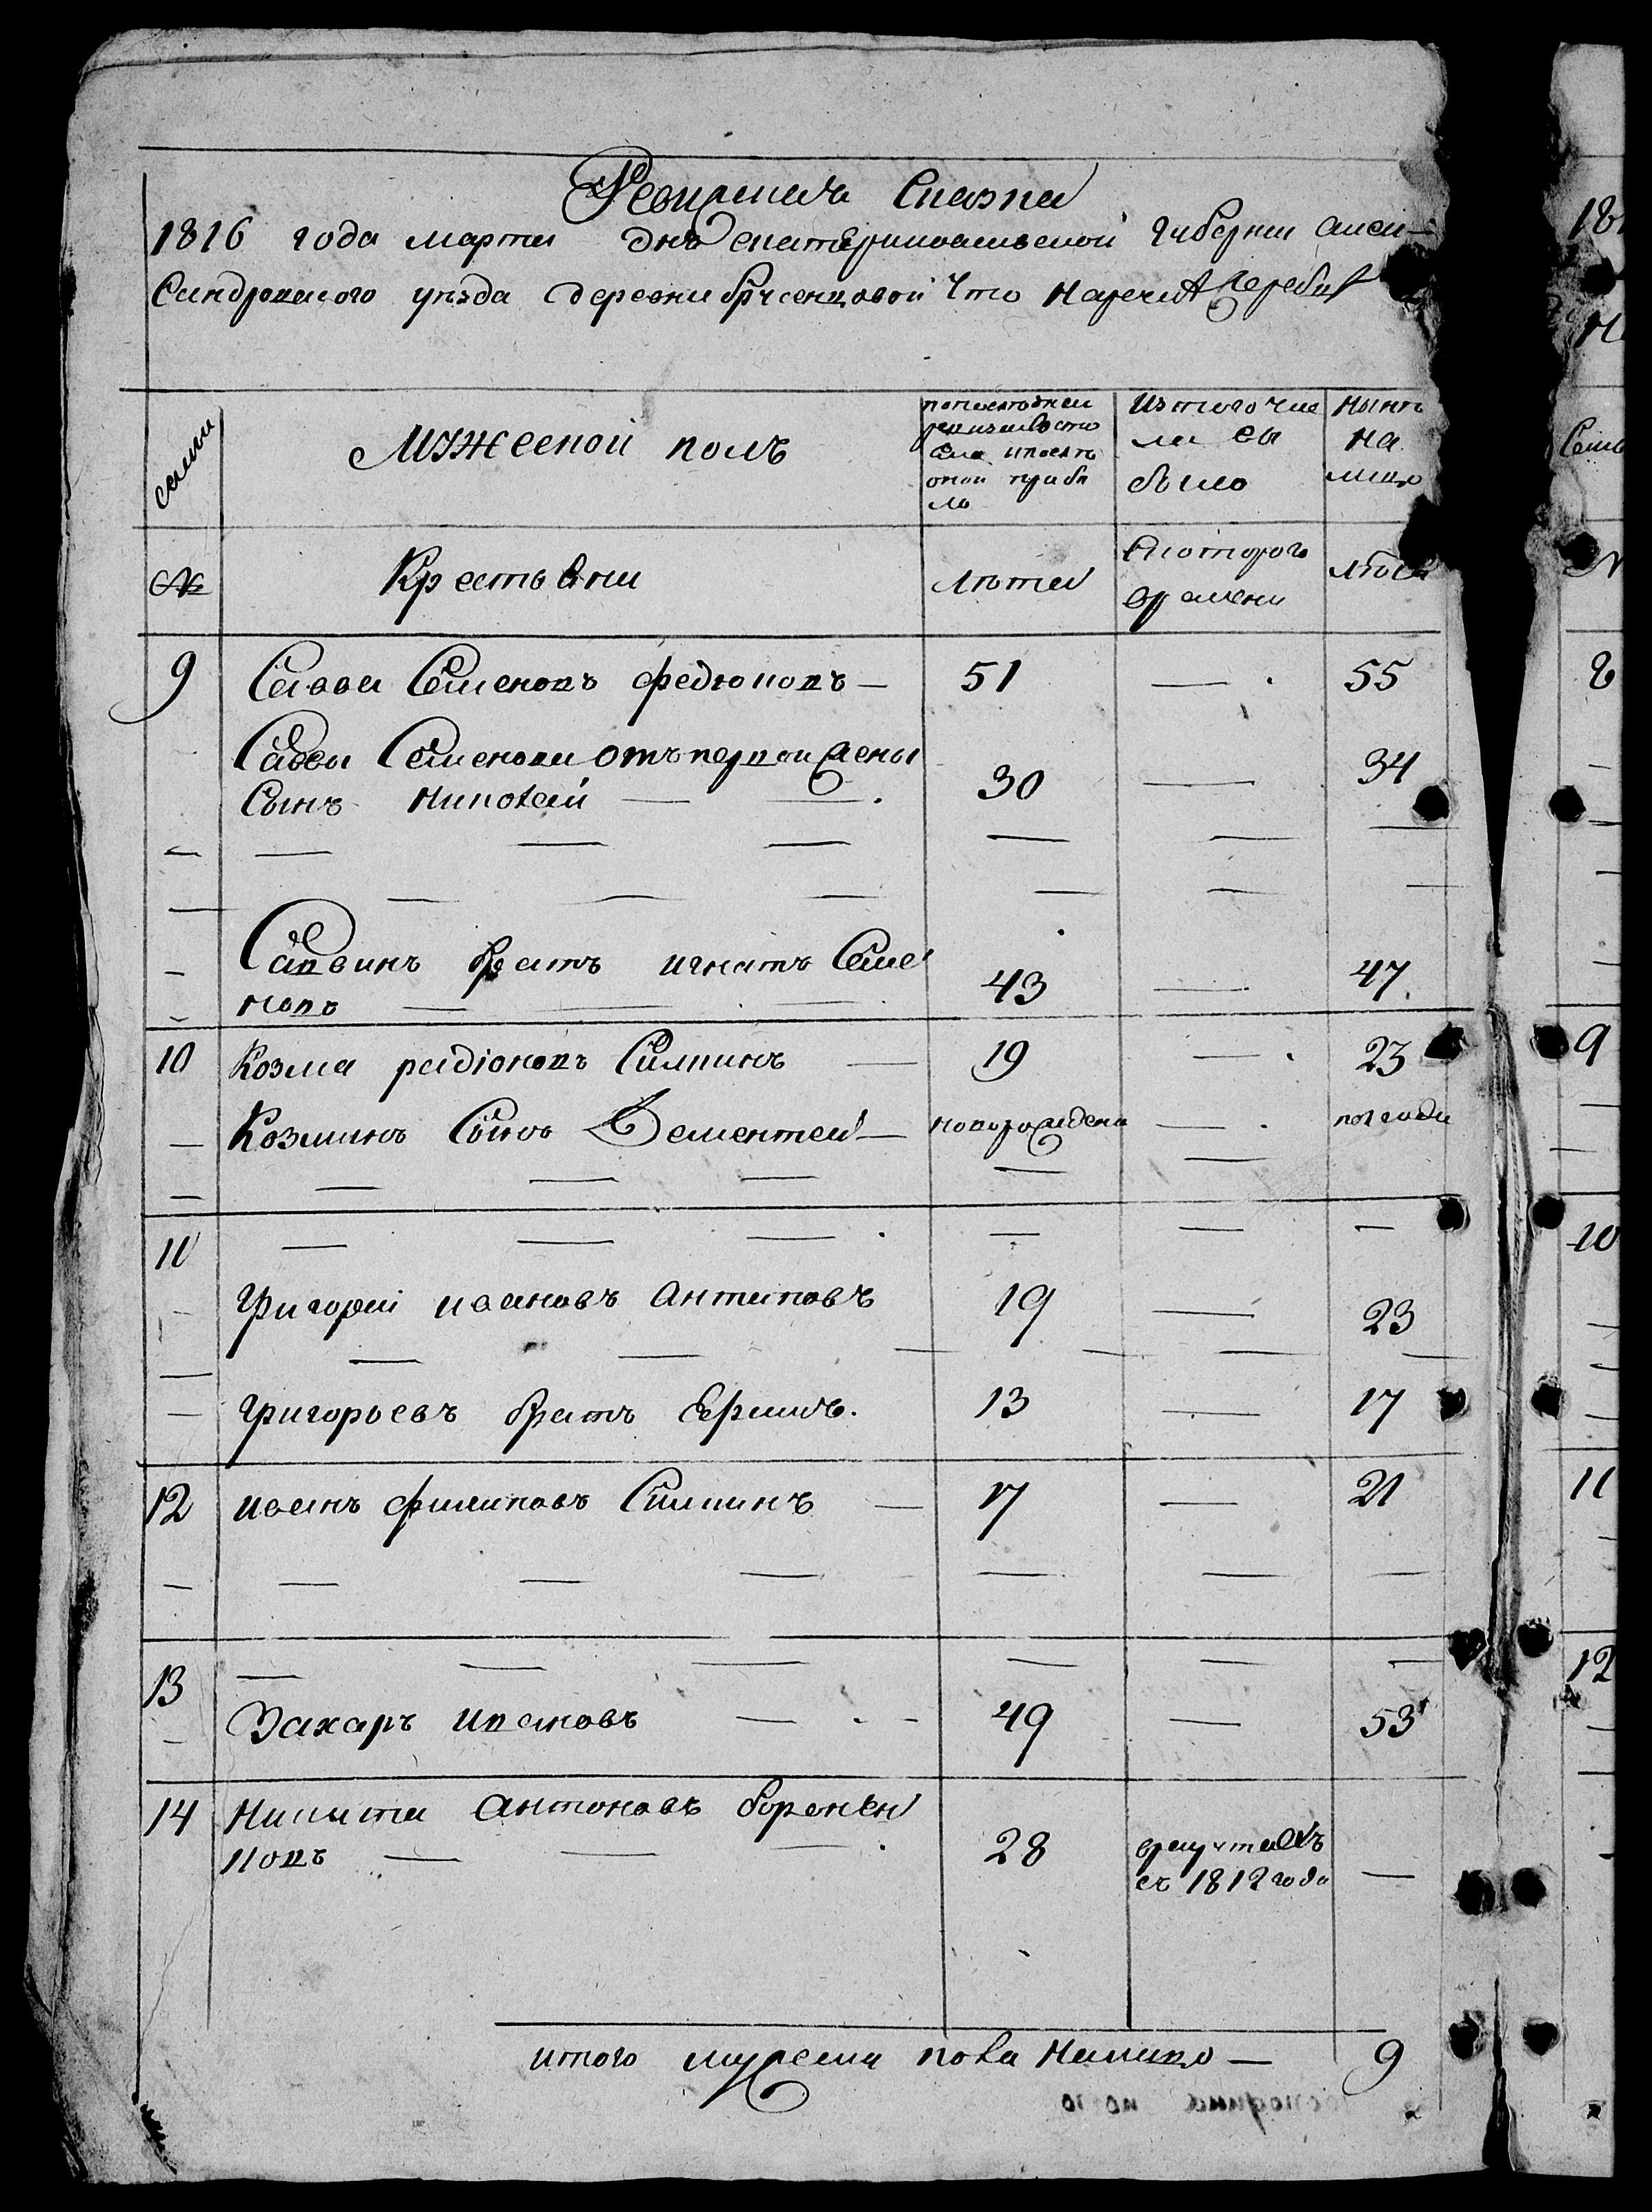 Ревизская Сказка
1816 года марта дня екатеринославской губернии алек-
сандровского уезда деревни что наречи Жеребце
Семьи
Мужеской полъ
попоследней
ревизии состо
яло и после
оной прибы
ло
Изтого чис
ла вы
было
Ныне
на
лицо
№
Крестьяни
Лета
Скоторого
времени
лета
9 Савва Семеновъ федюновъ — 51 — 55
Саввы Семенова отъ первои жены
Сынъ Николай — 30 — 34
Саввинъ братъ игнатъ Семе
новъ — 43 — 47
10 Козма радіоновъ Силкинъ — 19 — 23
Козминъ Сынъ Дементеи — новорожденъ — полгода
11
григореи ивановъ антиповъ 19 — 23
григорьевъ братъ 13 — 17
12 иванъ филиповъ Силкинъ — 17 — 21
13
Захаръ ивановъ — 49 — 53
14 Никита антоновъ
новъ — 28 врекрутахъ
съ 1812 года —
итого мужеска пола налицо — 9